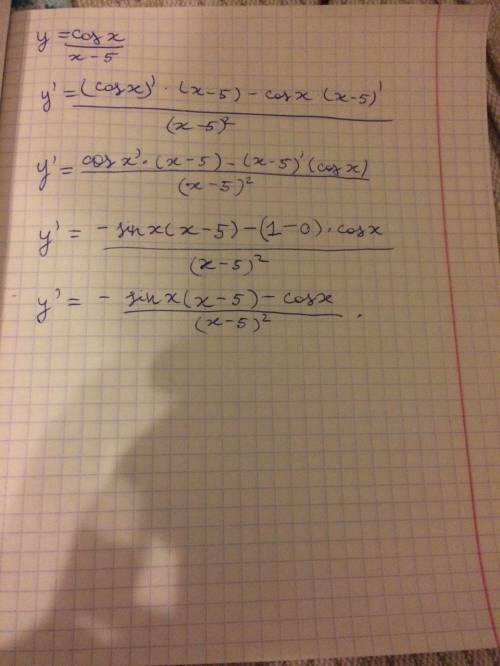 y = cos x / x-5
y' = (cos x)' · (x-5) - cos x · (x-5)' / (x-5)²
y' = cos x' · (x-5) - (x-5)' (cos x) / (x-5)²
y' = - sin x (x-5) - (1-0) · cos x / (x-5)²
y' = - sin x (x-5) - cos x / (x-5)² .